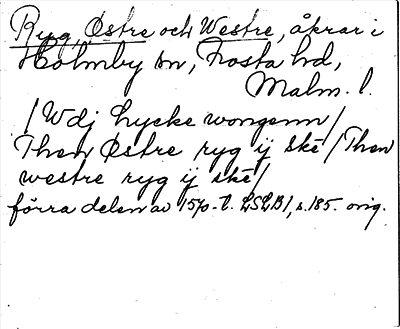 Ryg, Östre och Westre, åkrar i
Holmby sn, Frosta hd,
Malm. l.
/Wdj Lycke wongenn/
Then Östre ryg ij ske/Then
westre ryg ij ske/
förra delen av 1570-t. LSLB1, s.185. orig.